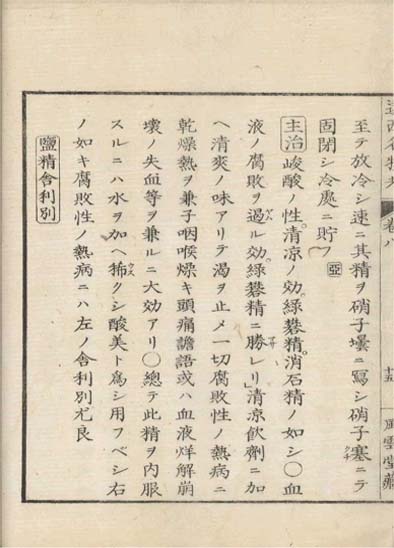 遠西名物考 卷八 十五 風雲堂藏
至テ放冷シ速ニ其精ヲ硝子壜ニ寫シ硝子塞ニテ
クチ
固閉シ冷處ニ貯フ亞
主治 峻酸ノ性。清凉ノ効。綠礬精。消石精ノ如シ〇血
液ノ腐敗ヲ遏ル効。綠礬精ニ勝レリ」清凉飲劑ニ加
ヘ清爽ノ味アリテ渴ヲ止メ一切腐敗性ノ熱病ニ
乾燥熱ヲ兼子咽喉燥キ頭痛譫語或ハ血液烊解崩
壞ノ失血等ヲ兼ルニ大効アリ〇總テ此精ヲ内服
スルニハ水ヲ加ヘ稀クシ酸美ト爲シ用フベシ右
ノ如キ腐敗性ノ熱病ニハ左ノ舎利別尤良
鹽精舎利別